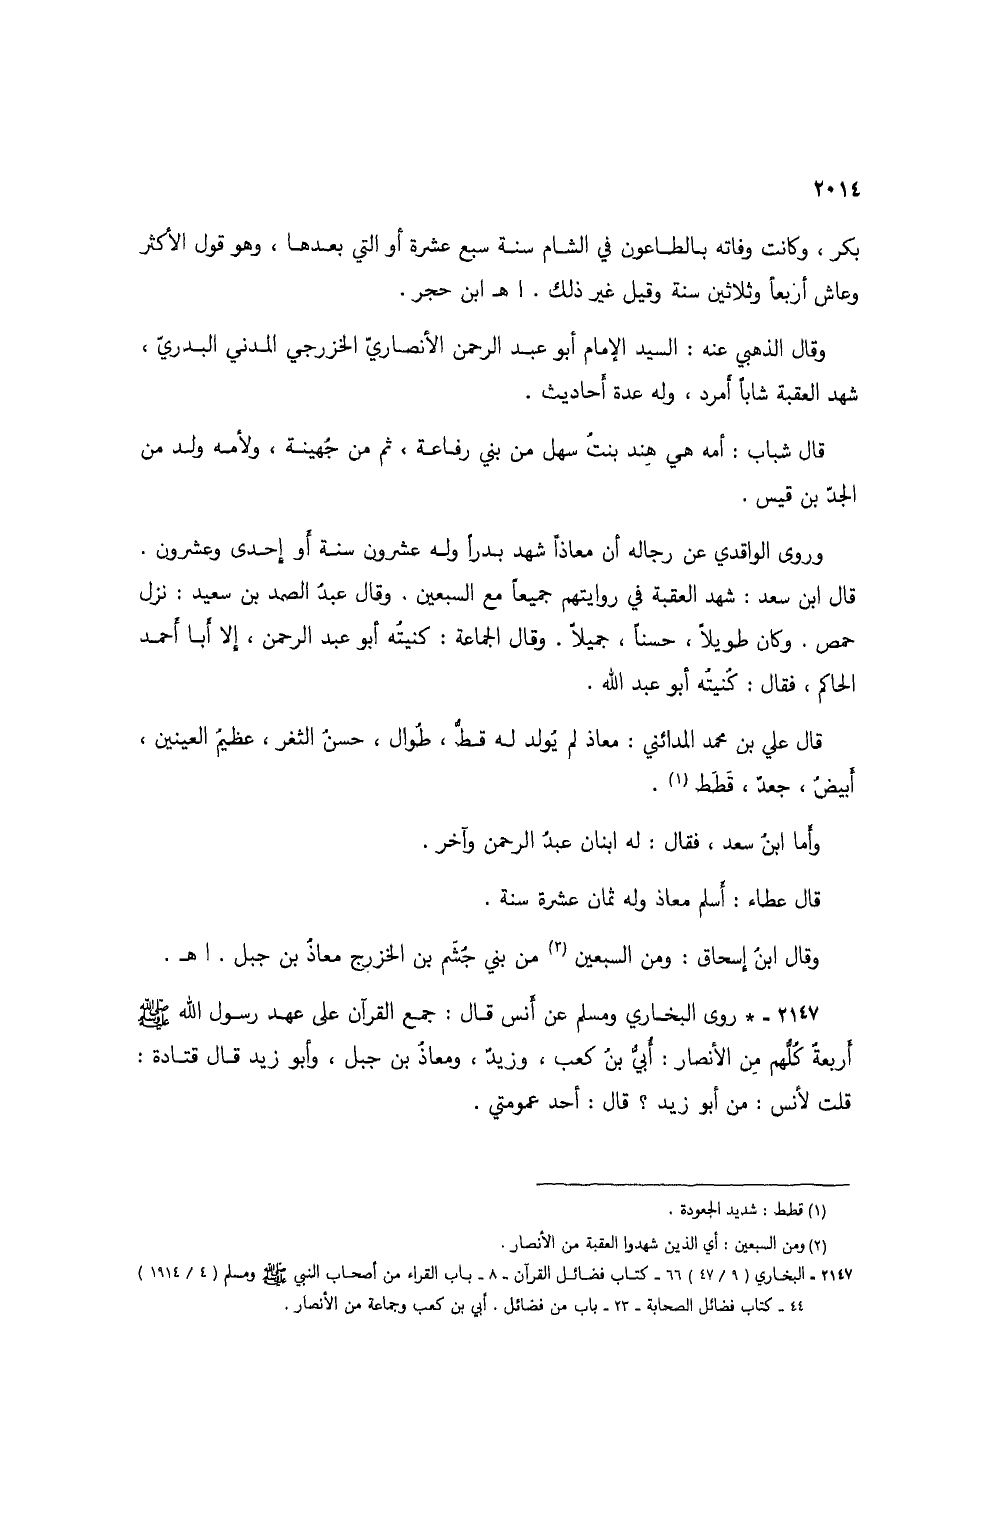 ٢٠١٤
بكر ، وكانت وفاته بالطاعون في الشام سنة سبع عشرة أو التي بعدها ، وهو قول الأكثر
وعاش أربعاً وثلاثين سنة وقيل غير ذلك . ا هـ ابن حجر .
وقال الذهبي عنه : السيد الإمام أبو عبد الرحمن الأنصاريّ الخزرجي المدني البدريّ ،
شهد العقبة شاباً أمرد ، وله عدة أحاديث .
قال شباب : أمه هي هِند بنتُ سهل من بني رفاعة ، ثم من جُهينة ، ولأمه ولد من
الجدّ بن قيس .
وروى الواقدي عن رجاله أن معاذاً شهد بدراً وله عشرون سنة أو إحدى وعشرون .
قال ابن سعد : شهد العقبة في روايتهم جميعاً مع السبعين . وقال عبدُ الصمد بن سعيد : نزل
حمص . وكان طويلاً ، حسناً ، جميلاً . وقال الجماعة : كنيتُه أبو عبد الرحمن ، إلا أبا أحمد
الحاكم ، فقال : كُنيتُه أبو عبد الله .
قال علي بن محمد المدائني : معاذ لم يُولد له قطُّ ، طُوال ، حسنُ الثغر ، عظيمُ العينين ،
أبيضُ ، جعدٌ ، قَطَط (١) .
وأما ابنُ سعد ، فقال : له ابنان عبدُ الرحمن وآخر .
قال عطاء : أسلم معاذ وله ثمان عشرة سنة .
وقال ابنُ إسحاق : ومن السبعين (٢) من بني جُشَم بن الخزرج معاذُ بن جبل . ا هـ .
٢١٤٧ - * روى البخاري ومسلم عن أنس قال : جمع القرآن على عهد رسول الله ﷺ
أربعةٌ كُلُّهم مِن الأنصار : أُبيُّ بنُ كعب ، وزيدٌ ، ومعاذُ بن جبل ، وأبو زيد قال قتادة :
قلت لأنس : من أبو زيد ؟ قال : أحد عمومتي .
(١) قطط : شديد الجعودة .
(٢) ومن السبعين : أي الذين شهدوا العقبة من الأنصار .
٢١٤٧ - البخاري ( ٩ / ٤٧ ) ٦٦ - كتاب فضائل القرآن - ٨ - باب القراء من أصحاب النبي ﷺ ومسلم ( ٤ / ١٩١٤ )
٤٤ - كتاب فضائل الصحابة - ٢٣ - باب من فضائل . أبي بن كعب وجماعة من الأنصار .